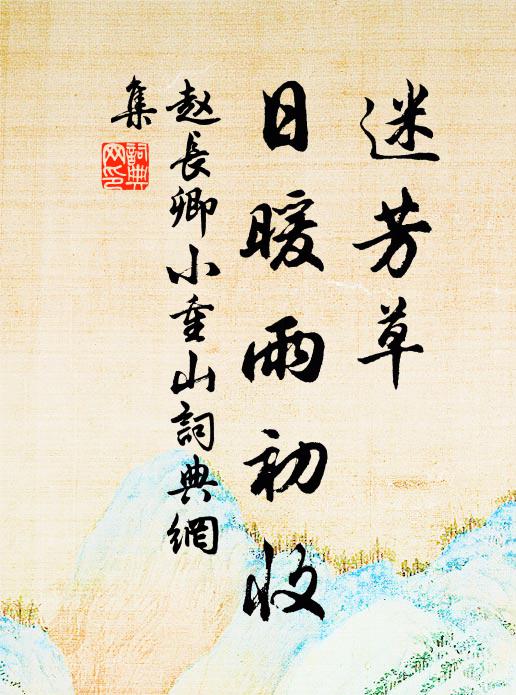 迷芳草
日暖雨初收
赵長卿小重山詞典網
集
詞典
网印